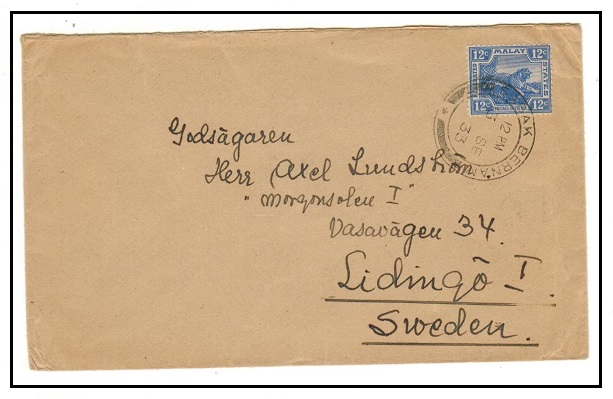 12c MALAY 12c
STATES
12c 12c
AK BERNAM
12 PM
SE
33
Godsägaren
Herr Axel Lundström.
"Morgonsolen I"
Vasavägen 34.
Lidingö I.
Sweden.